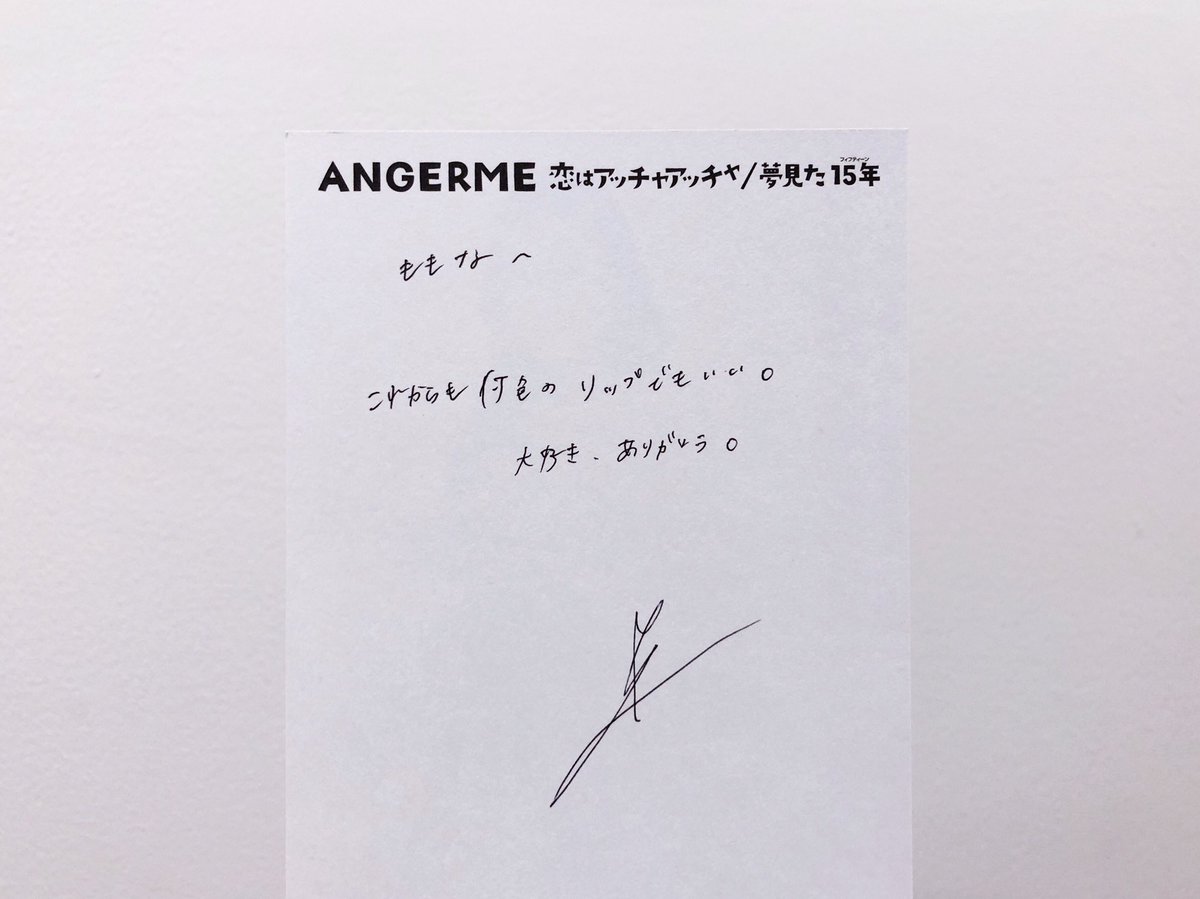 ANGERME 恋はアッチャアッチャ/夢見た15年
フィフティーン
ももなへ
これからも何色のリップでもいい。
大好き、ありがとう。